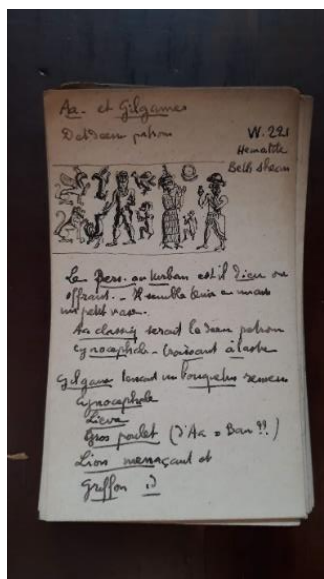 Aa- et Gilgames
Déesse patron
W. 221
Hematite
Beth shean
Le Pers. au turban est il Dieu ou
offrant. - Il semble tenir en main
un petit vase.
serait la Déesse patron
Cynocephale - Croissant à l'astre
Gilgames un Bouquetin
Cynocephale
Lièvre
Gros poulet (d'Aa = Bau ??)
Lion menaçant et
Griffon id